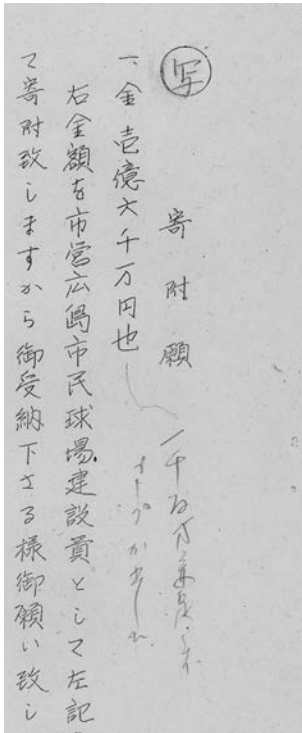 写
寄附願
一、金壱億六千万円也
右金額を市営広島市民球場建設費として左記
て寄附致しますから御受納下さる様御願い致し